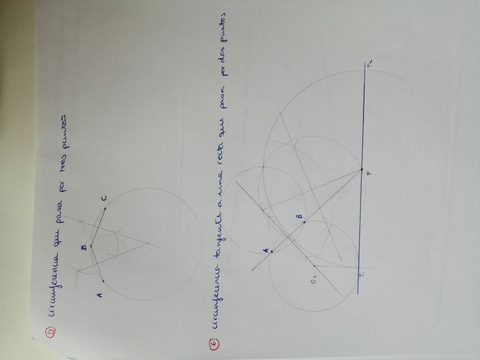 5 circunferencia que pasa por tres puntos
A
B
C
6 circunferencia tangente a una recta que pasa por dos puntos
A
B
C₁
P
T₁
T₂